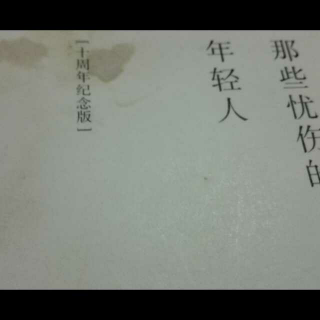 那些忧伤的
年轻人
[十周年纪念版]